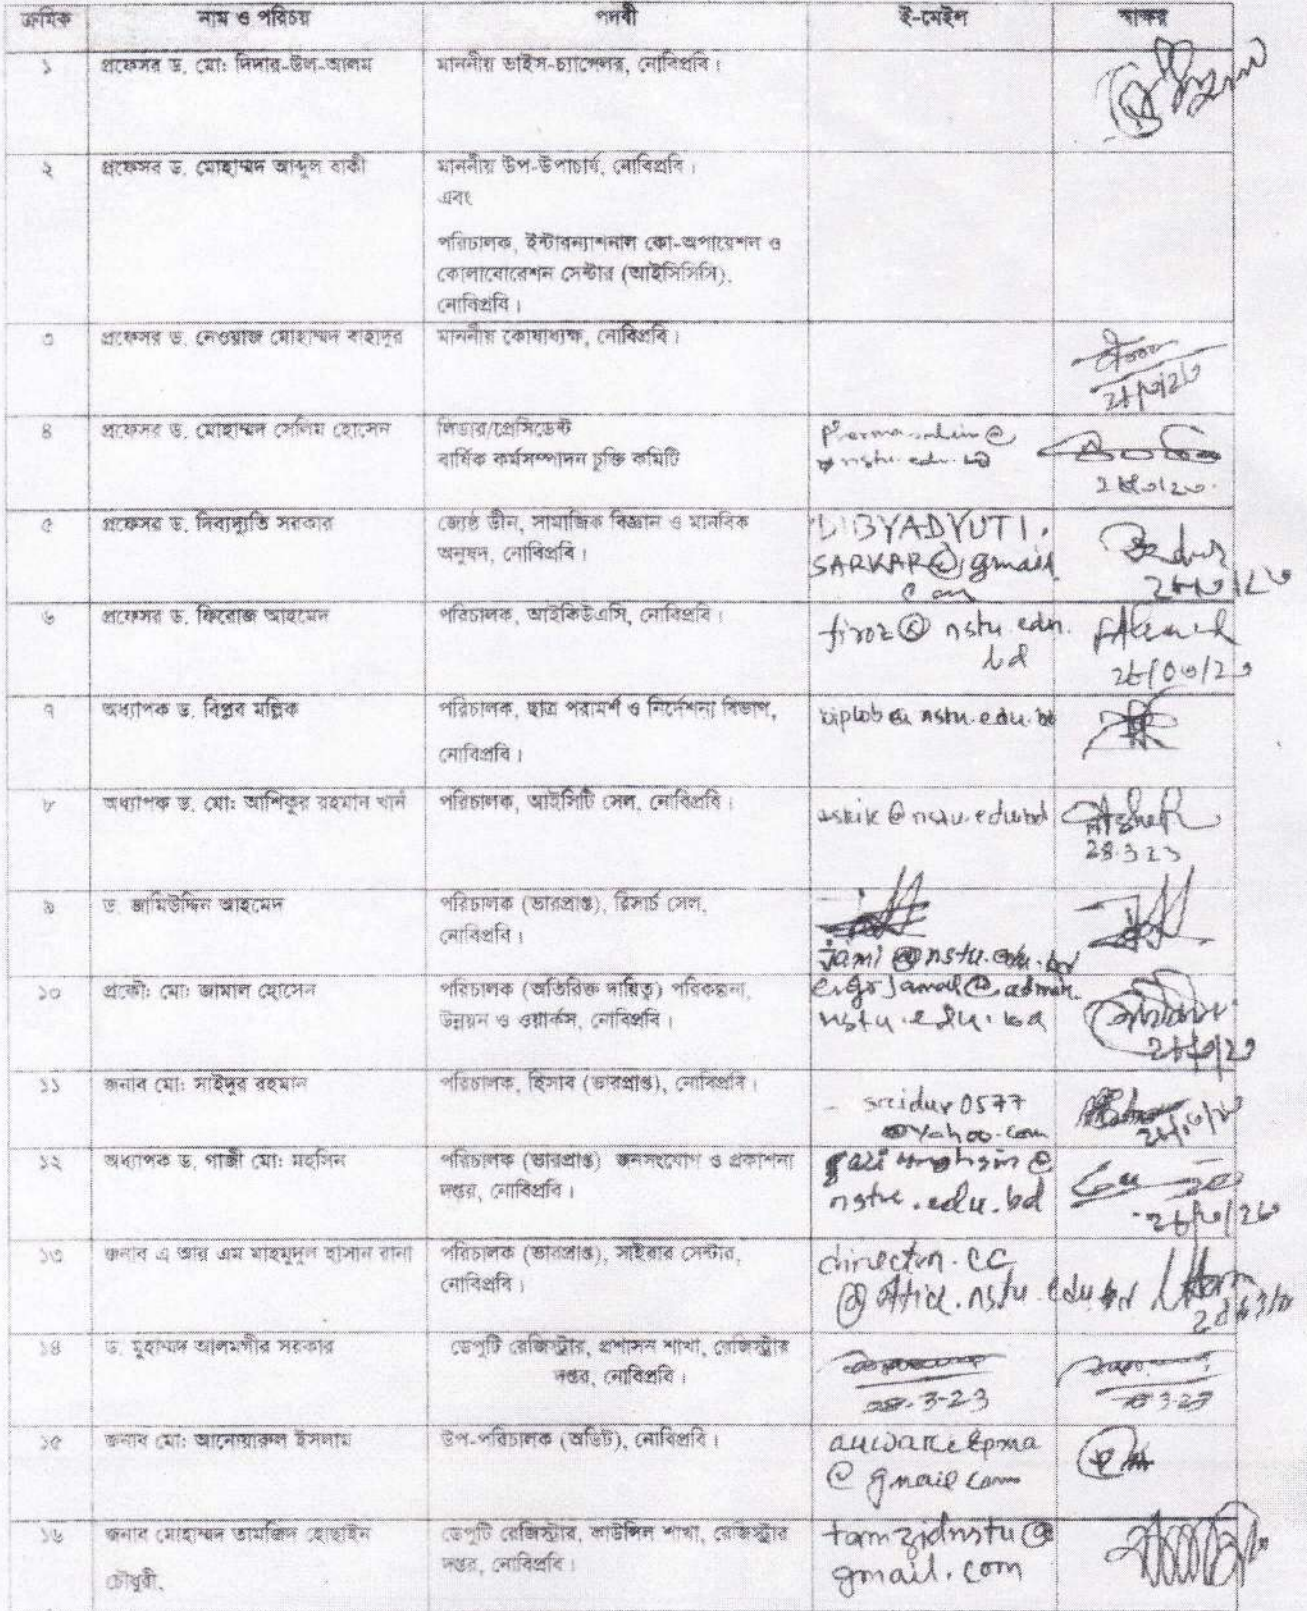 ক্রমিক নাম ও পরিচয় পদবী ই-মেইল স্বাক্ষর
১ প্রফেসর ড. মো: দিদার-উল-আলম মাননীয় ভাইস-চ্যান্সেলর, নোবিপ্রবি।
২ প্রফেসর ড. মোহাম্মদ আব্দুল বাকী মাননীয় উপ-উপাচার্য, নোবিপ্রবি।
এবং
পরিচালক, ইন্টারন্যাশনাল কো-অপারেশন ও
কোলাবোরেশন সেন্টার (আইসিসিসি),
নোবিপ্রবি।
৩ প্রফেসর ড. নেওয়াজ মোহাম্মদ বাহাদুর মাননীয় কোষাধ্যক্ষ, নোবিপ্রবি।
৪ প্রফেসর ড. মোহাম্মদ সেলিম হোসেন লিডার/প্রেসিডেন্ট
বার্ষিক কর্মসম্পাদন চুক্তি কমিটি
nstu.edu.bd
৫ প্রফেসর ড. দিব্যদ্যুতি সরকার জ্যেষ্ঠ ডীন, সামাজিক বিজ্ঞান ও মানবিক
অনুষদ, নোবিপ্রবি।
DIBYADYUTI.
SARKAR@gmail
com
৬ প্রফেসর ড. ফিরোজ আহমেদ পরিচালক, আইকিউএসি, নোবিপ্রবি।
firoz@nstu.edu.
bd
৭ অধ্যাপক ড. বিপ্লব মল্লিক পরিচালক, ছাত্র পরামর্শ ও নির্দেশনা বিভাগ,
নোবিপ্রবি।
biplob@nstu.edu.bd
৮ অধ্যাপক ড. মো: আশিকুর রহমান খান পরিচালক, আইসিটি সেল, নোবিপ্রবি।
ashik@nstu.edu.bd
28.3.23
৯ ড. জামিউদ্দিন আহমেদ পরিচালক (ভারপ্রাপ্ত), রিসার্চ সেল,
নোবিপ্রবি।
jami@nstu.edu.bd
১০ প্রকৌ: মো: জামাল হোসেন পরিচালক (অতিরিক্ত দায়িত্ব) পরিকল্পনা,
উন্নয়ন ও ওয়ার্কস, নোবিপ্রবি।
engrjamal@admin.
nstu.edu.bd
১১ জনাব মো: সাইদুর রহমান পরিচালক, হিসাব (ভারপ্রাপ্ত), নোবিপ্রবি।
saidur0577
@yahoo.com
১২ অধ্যাপক ড. গাজী মো: মহসিন পরিচালক (ভারপ্রাপ্ত) জনসংযোগ ও প্রকাশনা
দপ্তর, নোবিপ্রবি।
gazimohsin@
nstu.edu.bd
১৩ জনাব এ আর এম মাহমুদুল হাসান রানা পরিচালক (ভারপ্রাপ্ত), সাইবার সেন্টার,
নোবিপ্রবি।
director.cc
@office.nstu.edu.bd
১৪ ড. মুহাম্মদ আলমগীর সরকার ডেপুটি রেজিস্ট্রার, প্রশাসন শাখা, রেজিস্ট্রার
দপ্তর, নোবিপ্রবি।
28.3-23
১৫ জনাব মো: আনোয়ারুল ইসলাম উপ-পরিচালক (অডিট), নোবিপ্রবি।
@gmail.com
১৬ জনাব মোহাম্মদ তামজিদ হোছাইন ডেপুটি রেজিস্ট্রার, কাউন্সিল শাখা, রেজিস্ট্রার
চৌধুরী, দপ্তর, নোবিপ্রবি।
tamzidnstu@
gmail.com